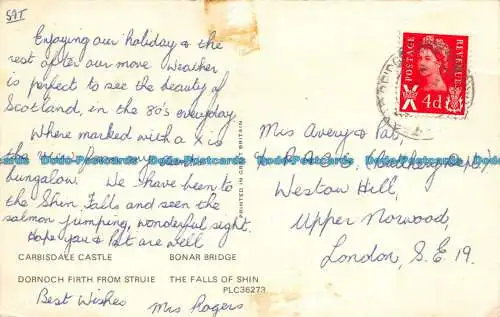 59T
Enjoying our holiday & the
rest after our move Weather
is perfect to see the beauty of
Scotland, in the 80's everyday.
Where marked with a x is
the
bungalow. We have been to
the Shin Falls and seen the
salmon jumping, wonderful sight.
Hope you & Pat are well
CARBISDALE CASTLE BONAR BRIDGE
DORNOCH FIRTH FROM STRUIE THE FALLS OF SHIN
PLC36273
Best Wishes
Mrs Rogers
PRINTED IN GREAT BRITAIN
POSTAGE
REVENUE
4d
Miss Avery & Pat,
Weston Hill,
Upper Norwood,
London, S.E. 19.
Dodo-Postcards Dodo-Postcards Dodo-Postcards Dodo-Postcards